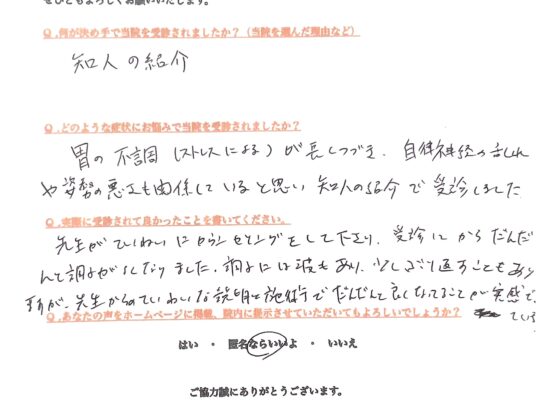 ぜひともよろしくお願いいたします。
Q.何が決め手で当院を受診されましたか？（当院を選んだ理由など）
知人の紹介
Q.どのような症状にお悩みで当院を受診されましたか？
胃の不調（ストレスによる）が長くつづき、自律神経の乱れ
や姿勢の悪さも関係していると思い知人の紹介で受診しました
Q.実際に受診されて良かったことを書いてください。
先生がていねいにカウンセリングをして下さり、受診してからだんだ
んと調子がよくなりました。調子には波もあり、少しぶり返すこともあり
ますが、先生からのていねいな説明と施術でだんだんと良くなってることが実感で
Q.あなたの声をホームページに掲載、院内に提示させていただいてもよろしいでしょうか？
ている
はい ・ 匿名ならいいよ ・ いいえ
ご協力誠にありがとうございます。